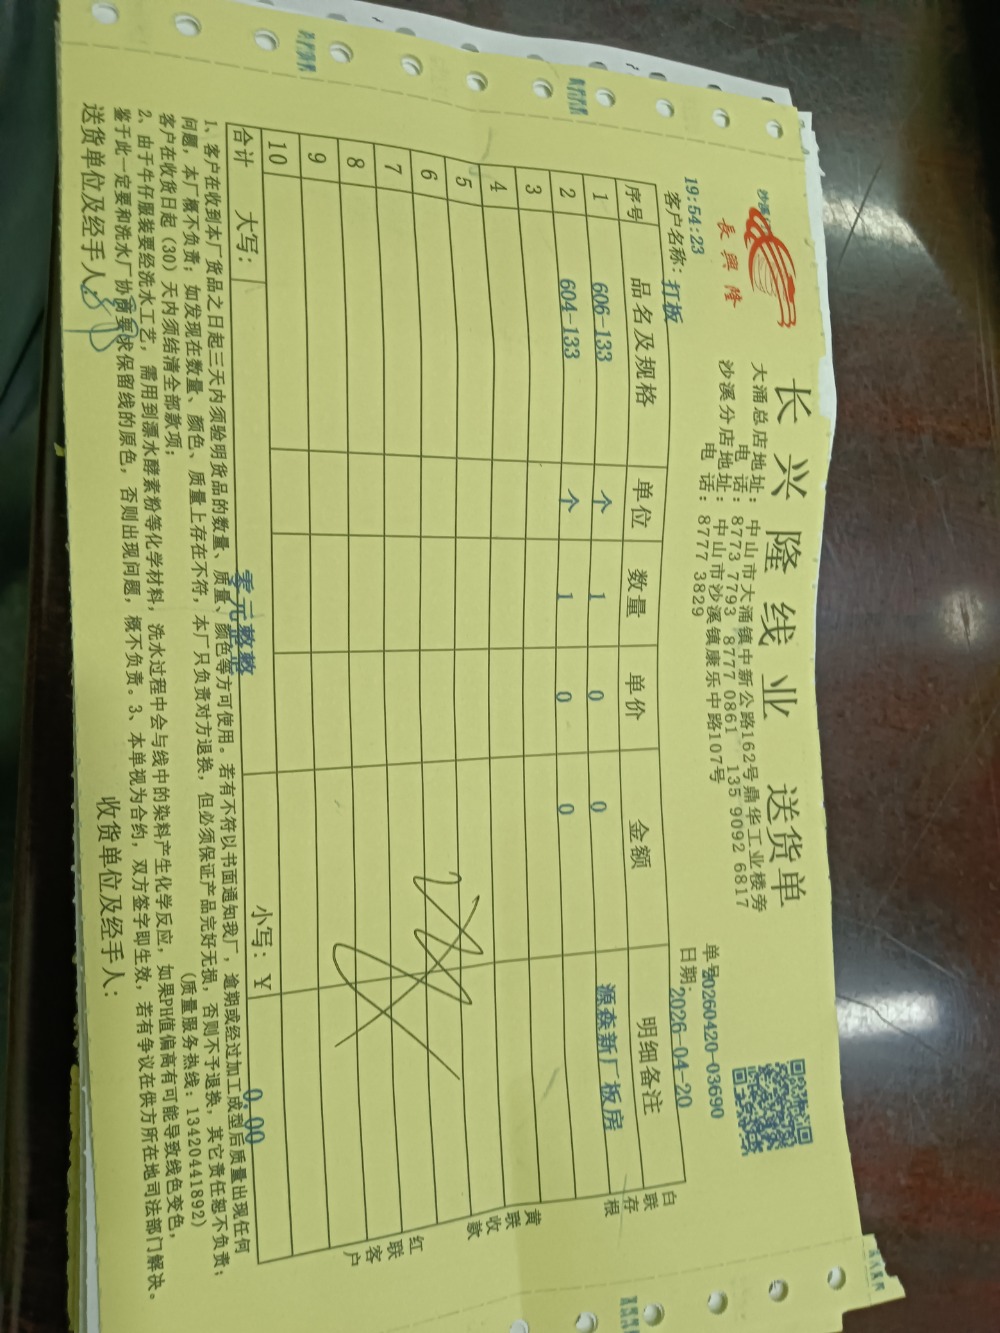 長興隆
长兴隆线业 送货单
大涌总店地址：中山市大涌镇中新公路162号鼎华工业楼旁
电话：8773 7793 8777 0861 135 9092 6817
沙溪分店地址：中山市沙溪镇康乐中路107号
电话：8777 3829
单号20260420-03690
日期：2026-04-20
19:54:23
客户名称：打板
序号 品名及规格 单位 数量 单价 金额 明细备注
1 606-133 个 1 0 0 源森新厂板房
2 604-133 个 1 0 0
3
4
5
6
7
8
9
10
合计 大写：零元整 小写：￥ 0.00
白联存根
黄联收款
红联客户
1、客户在收到本厂货品之日起三天内须验明货品的数量、质量、颜色等方可使用。若有不符以书面通知我厂，逾期或经过加工成型后质量出现任何
问题，本厂概不负责；如发现在数量、颜色、质量上存在不符，本厂只负责对方退换，但必须保证产品完好无损，否则不予退换，其它责任恕不负责；
客户在收货日起（30）天内须结清全部款项； （质量服务热线：13420441892）
2、由于牛仔服装要经洗水工艺，需用到漂水酵素粉等化学材料，洗水过程中会与线中的染料产生化学反应，如果PH值偏高有可能导致线色变色，
鉴于此一定要和洗水厂协商要求保留线的原色，否则出现问题，概不负责。3、本单视为合约，双方签字即生效，若有争议在供方所在地司法部门解决。
送货单位及经手人： 收货单位及经手人：